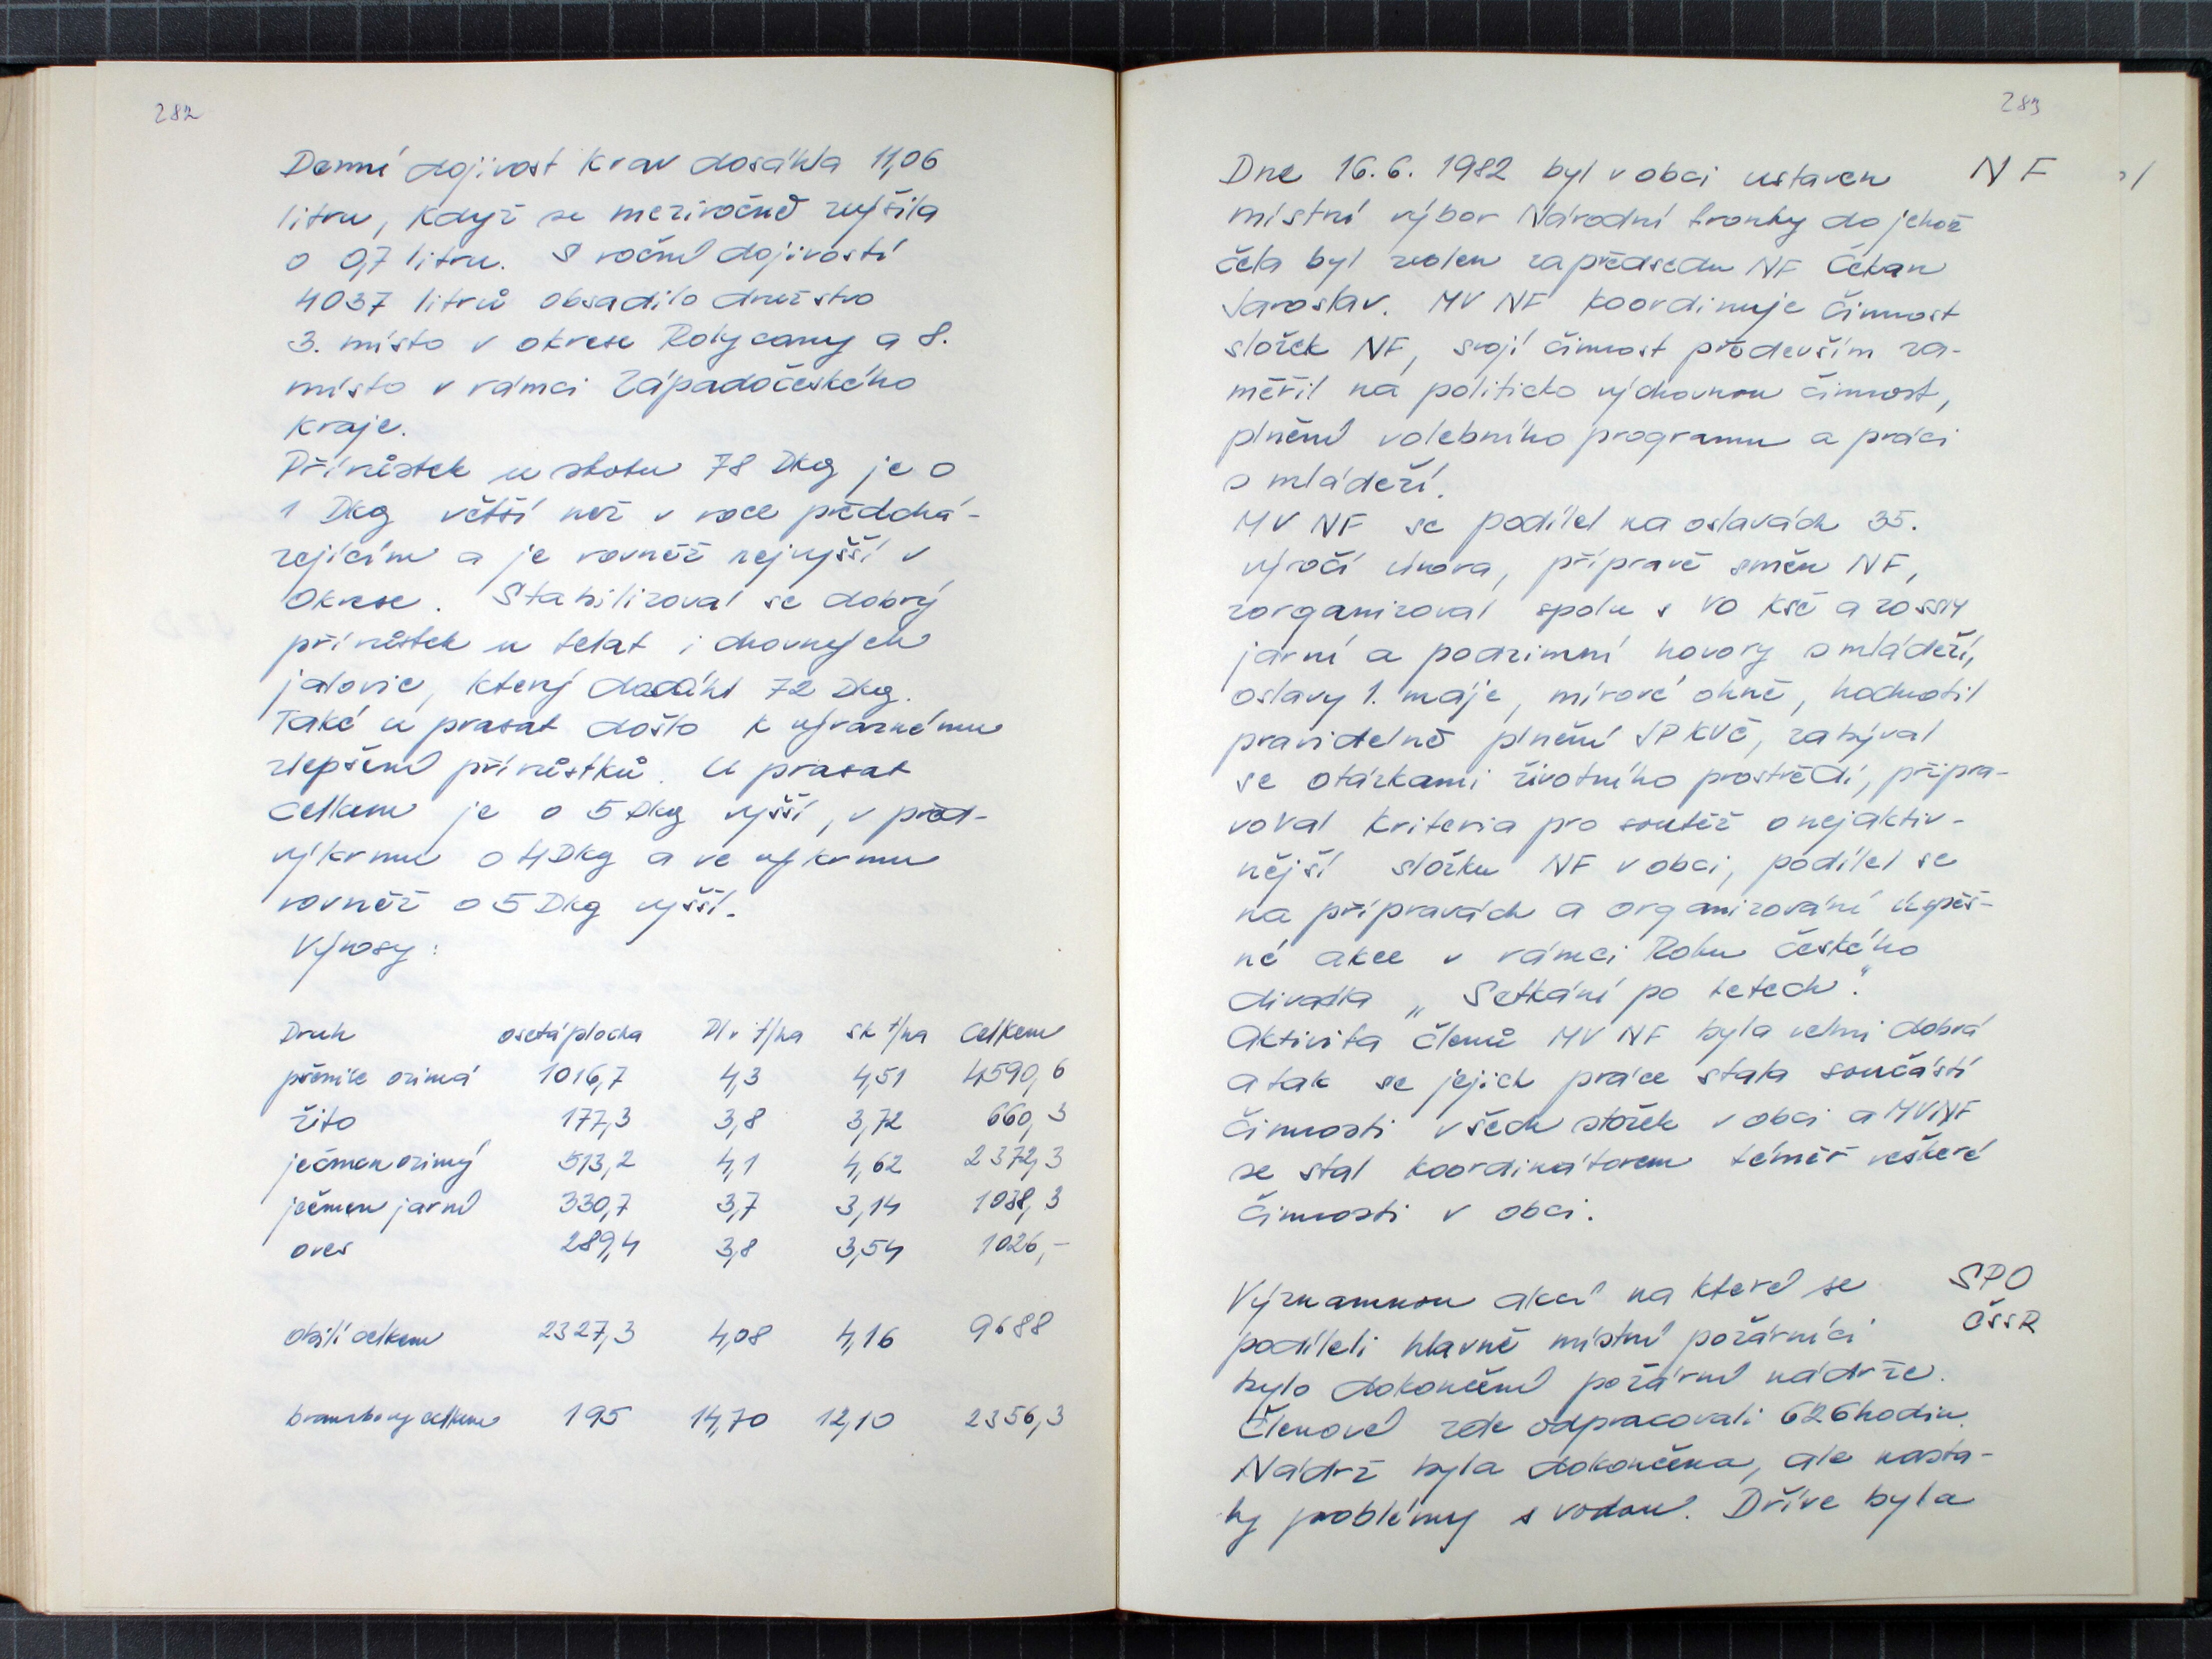 282
Denní dojivost krav dosáhla 11,06
litru, když se meziročně zvýšila
o 0,7 litru. S roční dojivostí
4037 litrů obsadilo družstvo
3. místo v okrese Rokycany a 8.
místo v rámci Západočeského
kraje.
Přírůstek u skotu 78 Dkg je o
1 Dkg větší než v roce předchá-
zejícím a je rovněž nejvyšší v
okrese. Stabilizoval se dobrý
přírůstek u telat i chovných
jalovic, který dosáhl 72 Dkg.
Také u prasat došlo k výraznému
zlepšení přírůstků. U prasat
celkem je o 5 Dkg vyšší, v před-
výkrmu o 4 Dkg a ve výkrmu
rovněž o 5 Dkg vyšší.
Výnosy:
Druh osetá plocha Pl v t/ha sk t/ha Celkem
pšenice ozimá 1016,7 4,3 4,51 4590,6
žito 177,3 3,8 3,72 660,3
ječmen ozimý 513,2 4,1 4,62 2372,3
ječmen jarní 330,7 3,7 3,14 1038,3
oves 289,4 3,8 3,54 1026,-
obilí celkem 2327,3 4,08 4,16 9688
brambory celkem 195 14,70 12,10 2356,3
283
Dne 16.6. 1982 byl v obci ustaven NF
místní výbor Národní fronty do jehož
čela byl zvolen za předsedu NF Čekan
Jaroslav. MV NF koordinuje činnost
složek NF, svojí činnost především za-
měřil na politicko výchovnou činnost,
plnění volebního programu a práci
s mládeží.
MV NF se podílel na oslavách 35.
výročí února, přípravě směn NF,
zorganizoval spolu s VO KSČ a ZO SSM
jarní a podzimní hovory s mládeží,
oslavy 1. máje, mírové ohně, hodnotil
pravidelně plnění JPKVČ, zabýval
se otázkami životního prostředí, připra-
voval kriteria pro soutěž o nejaktiv-
nější složku NF v obci, podílel se
na přípravách a organizování úspěš-
né akce v rámci Roku českého
divadla „Setkání po letech".
Aktivita členů MV NF byla velmi dobrá
a tak se jejich práce stala součástí
činnosti všech složek v obci a MVNF
se stal koordinátorem téměř veškeré
činnosti v obci.
Významnou akcí na které se SPO
podíleli hlavně místní požárníci ČSSR
bylo dokončení požární nádrže.
Členové zde odpracovali 626 hodin.
Nádrž byla dokončena, ale nasta-
ly problémy s vodou. Dříve byla